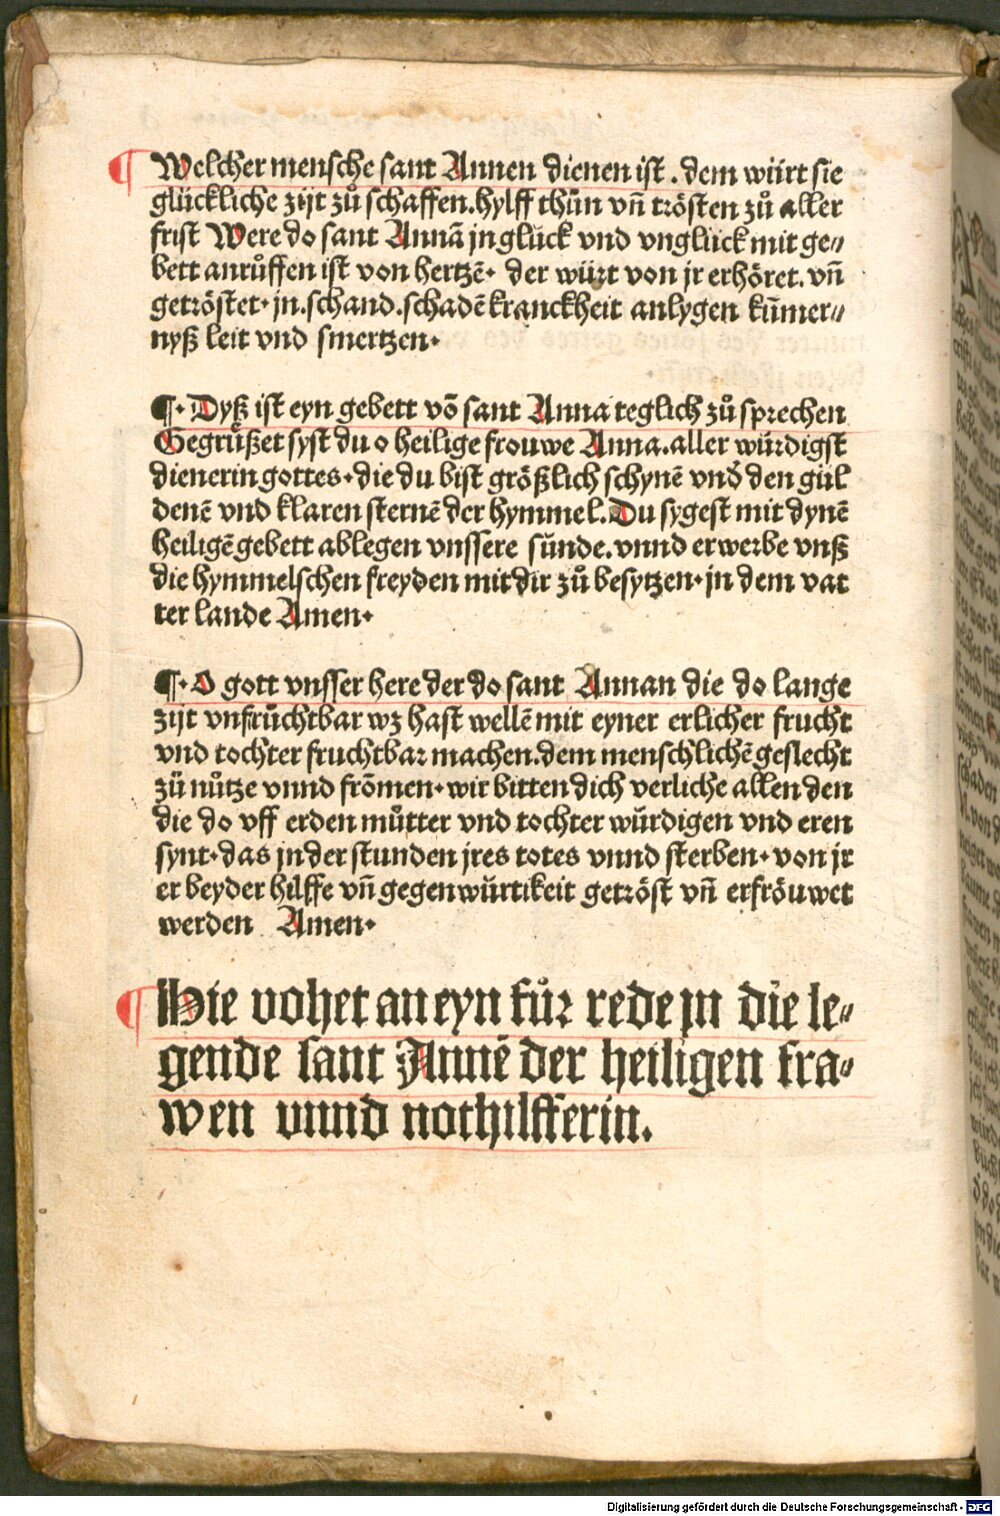 ¶ Welcher mensche sant Annen dienen ist . dem würt sie
glückliche zijt zů schaffen. hylff thůn vn̄ trösten zů aller
frist Were do sant Annā jn glück vnd vnglück mit ge⸗
bett anrůffen ist von hertzē· der würt von jr erhöret. vn̄
getröstet· jn. schand. schadē kranckheit anlygen kūmer⸗
nyß leit vnd smertzen·
¶· Dyß ist eyn gebett vō sant Anna teglich zů sprechen
Gegrůßet syst du o heilige frouwe Anna. aller würdigst
dienerin gottes· die du bist größlich schynē vnd̄ den gül
denē vnd klaren sternē der hymmel. Du sygest mit dynē
heiligē gebett ablegen vnssere sünde. vnnd erwerbe vnß
die hymmelschen freyden mit dir zů besytzen· jn dem vat
ter lande Amen·
¶· O gott vnsser here der do sant Annan die do lange
zijt vnfrůchtbar wz hast wellē mit eyner erlicher frucht
vnd tochter fruchtbar machen. dem menschlichē geslecht
zů nůtze vnnd frōmen· wir bitten dich verliche allen den
die do vff erden můtter vnd tochter würdigen vnd eren
synt· das jn der stunden jres totes vnnd sterben· von jr
er beyder hilffe vn̄ gegenwürtikeit getröst vn̄ erfröuwet
werden Amen·
¶ Hie vohet an eyn fůr rede jn die le⸗
gende sant Annē der heiligen fra⸗
wen vnnd nothilfferin.
Digitalisierung gefördert durch die Deutsche Forschungsgemeinschaft - DFG